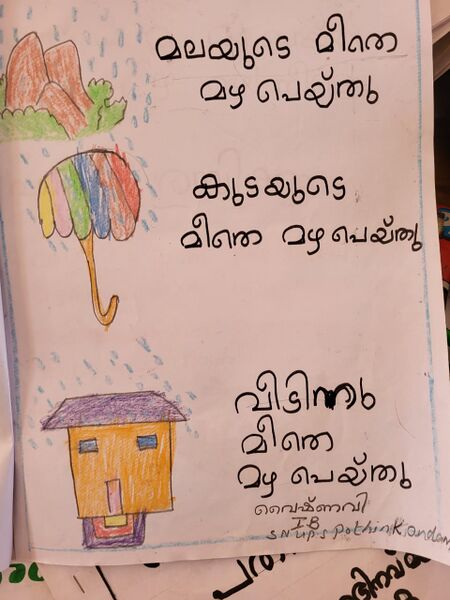 മലയുടെ മീതെ
മഴ പെയ്തു
കുടയുടെ
മീതെ മഴ പെയ്തു
വീടിന്നു
മീതെ
മഴ പെയ്തു
വൈഷ്ണവി
I B
SNUPS Pothinkandam